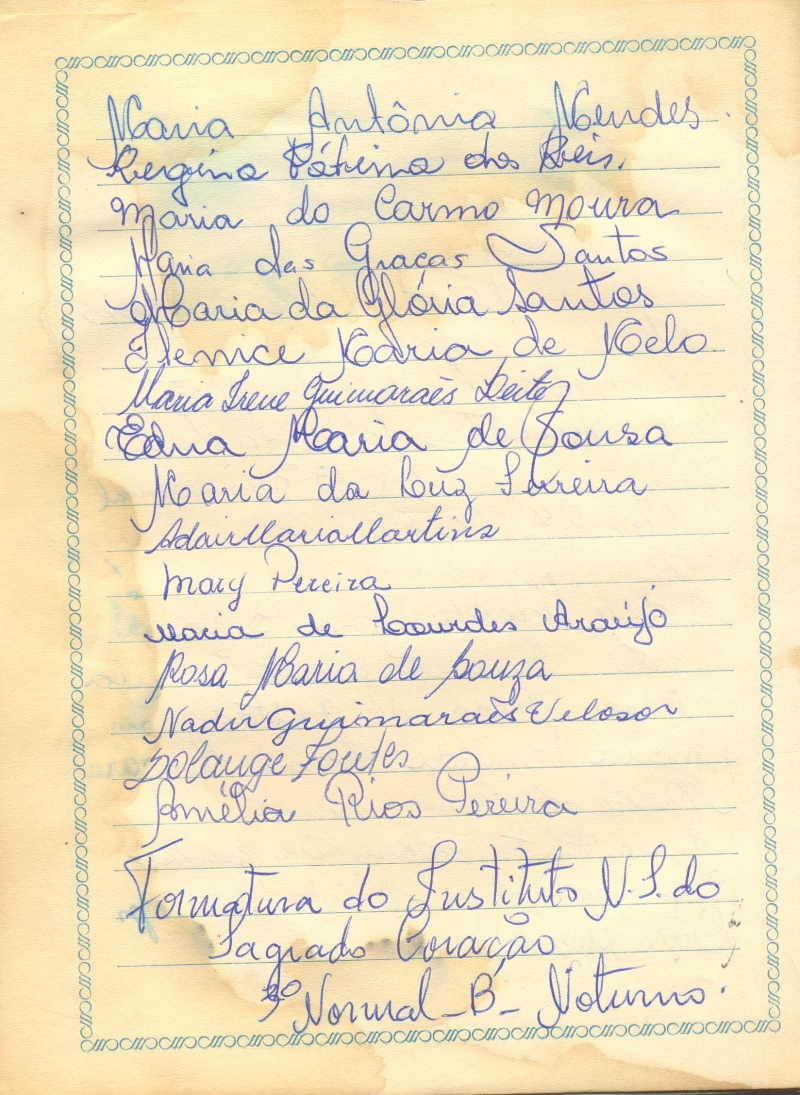 Maria Antônia Mendes.
Regina Fátima dos Reis.
Maria do Carmo Moura
Maria das Graças Santos
Maria da Glória Santos
Elenice Maria de Melo.
Maria Irene Guimarães Leite
Edna Maria de Sousa
Maria da Luz Ferreira
Adair Maria Martins
Mary Pereira
Maria de Lourdes Araújo
Rosa Maria de Souza
Nadir Guimarães Veloso
Solange Fontes
Amélia Rios Pereira
Formatura do Instituto N. S. do
Sagrado Coração
3º Normal - B - Noturno.